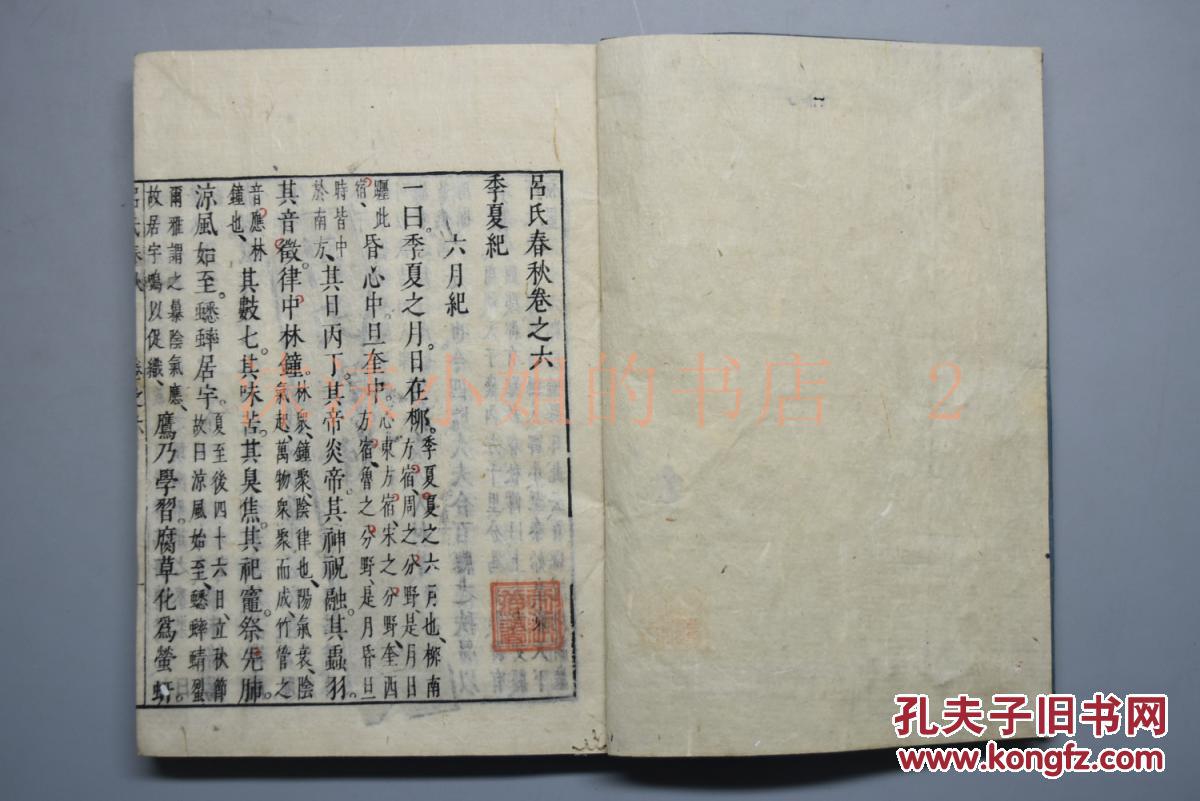 呂氏春秋卷之六
季夏紀
六月紀
一曰季夏之月日在桺季夏夏之六月也桺南方宿周之分野是月日
躔此宿昏心中旦奎中心東方宿宋之分野奎西方宿魯之分野是月昏旦
時皆中於南方其日丙丁其帝炎帝其神祝融其蟲羽
其音徵律中林鐘林衆鐘聚陰律也陽氣衰陰氣起萬物衆聚而成竹管之
音應林鐘也其數七其味苦其臭焦其祀竈祭先肺
涼風始至蟋蟀居宇夏至後四十六日立秋節故曰涼風始至蟋蟀蜻蛚
爾雅謂之蛬陰氣應故居宇鳴以促織鷹乃學習腐草化爲螢蚈
小姐的书店 2
孔夫子旧书网
www.kongfz.com